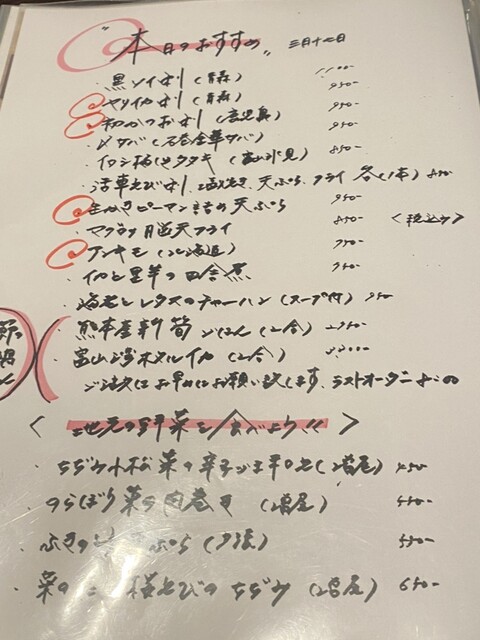 "本日のおすすめ" 三月十七日
・黒ソイ刺(青森) 1100-
・ヤリイカ刺(青森) 950-
・初かつお刺(鹿児島) 950-
・〆サバ(石巻金華サバ) 950-
・イワシ梅しそタタキ(富山氷見) 850-
・活車えび刺、塩焼き、天ぷら、フライ 各(1本) 850-
・生かきピーマン詰の天ぷら 950-
・マグロ脳天フライ 850- <税込み>
・アンキモ(北海道) 950-
・イカと里芋の田舎煮 750-
・海老とレタスのチャーハン(スープ付) 950-
・熊本産新筍ごはん(2合)
・富山湾ホタルイカ(2合)
ご注文はお早めにお願い致します、ラストオーダー
< 地元の野菜を食べよう!! >
・ちぢみ小松菜の辛子 450-
・のらぼう菜の肉巻き 550-
・ふきの 天ぷら 550-
・菜の 桜えびのちぢみ 650-